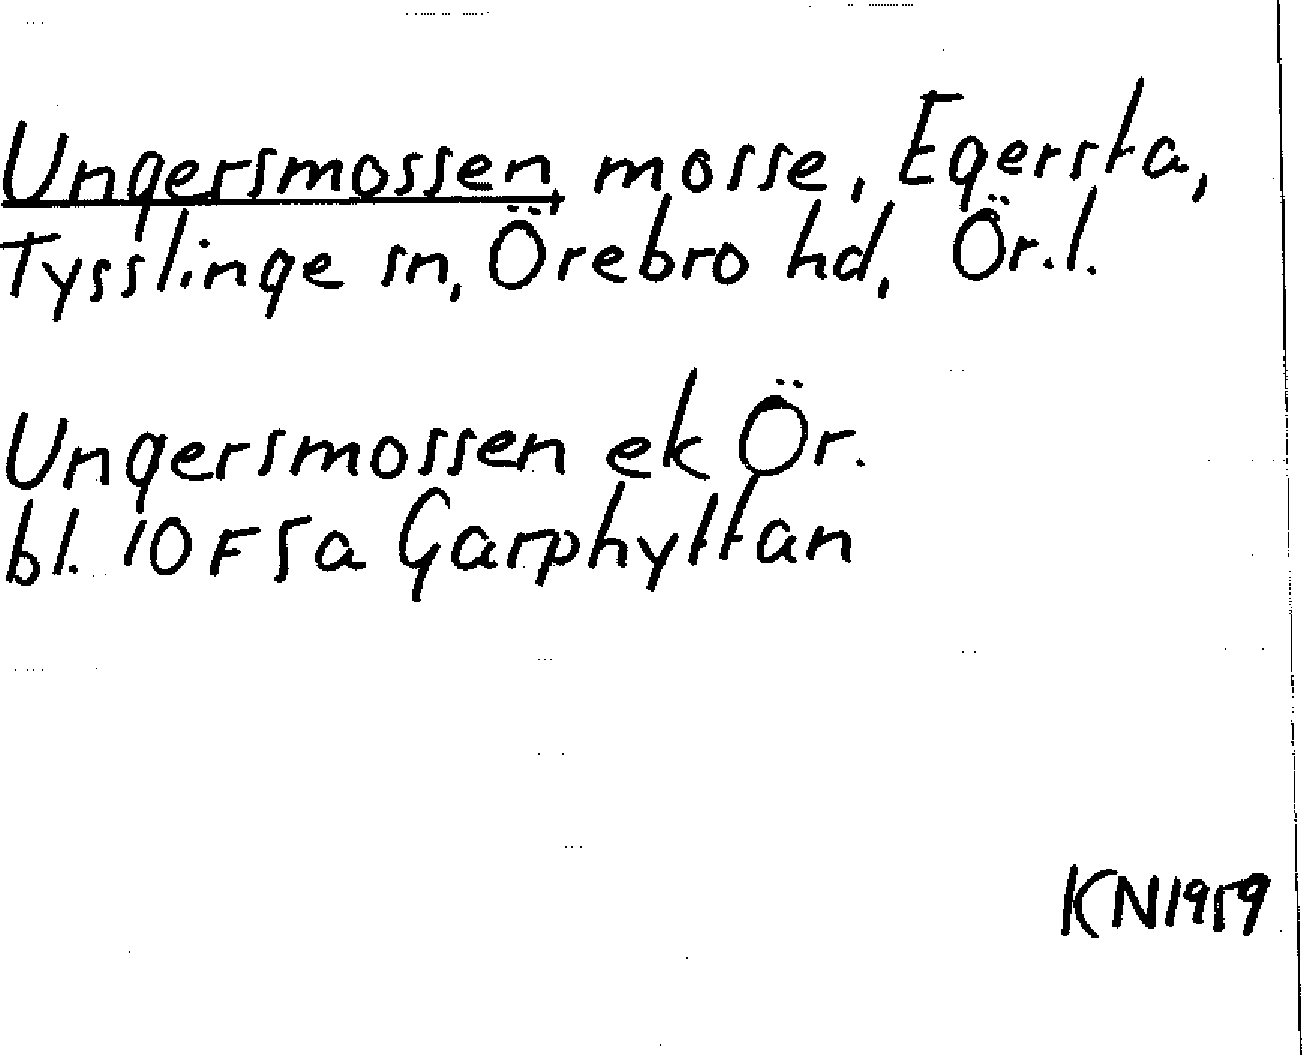 Ungersmossen, mosse, Egersta,
Tysslinge sn, Örebro hd, Ör.l.
Ungersmossen ek Ör.
bl. 10F5a Garphyttan
KN1959